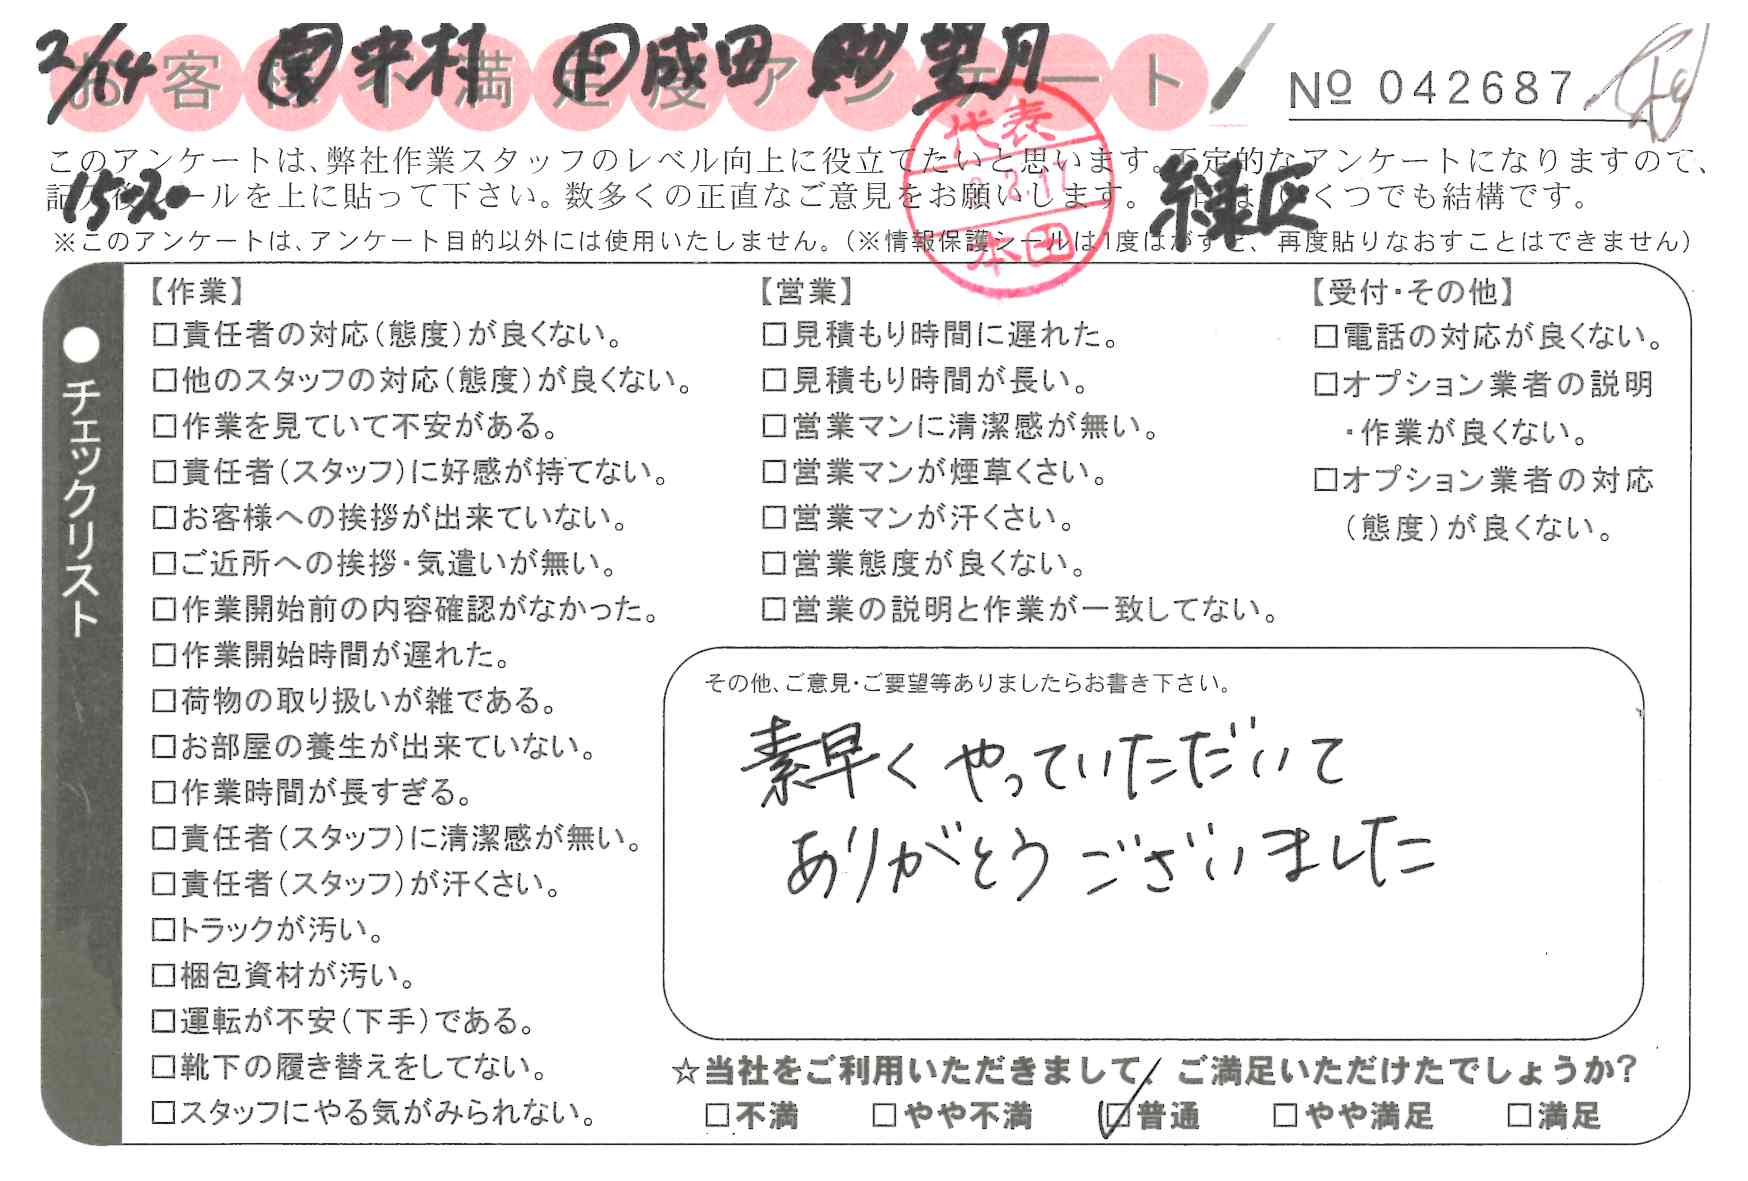 2/14 成田 望月
お客様不満足度アンケート
Nº 042687
このアンケートは、弊社作業スタッフのレベル向上に役立てたいと思います。不定的なアンケートになりますので、
1520 緑区
記入後シールを上に貼って下さい。数多くの正直なご意見をお願いします。 いくつでも結構です。
※このアンケートは、アンケート目的以外には使用いたしません。(※情報保護シールは1度はがすと、再度貼りなおすことはできません)
代表
2.17
本田
●チェックリスト
【作業】
□責任者の対応(態度)が良くない。
□他のスタッフの対応(態度)が良くない。
□作業を見ていて不安がある。
□責任者(スタッフ)に好感が持てない。
□お客様への挨拶が出来ていない。
□ご近所への挨拶・気遣いが無い。
□作業開始前の内容確認がなかった。
□作業開始時間が遅れた。
□荷物の取り扱いが雑である。
□お部屋の養生が出来ていない。
□作業時間が長すぎる。
□責任者(スタッフ)に清潔感が無い。
□責任者(スタッフ)が汗くさい。
□トラックが汚い。
□梱包資材が汚い。
□運転が不安(下手)である。
□靴下の履き替えをしてない。
□スタッフにやる気がみられない。
【営業】
□見積もり時間に遅れた。
□見積もり時間が長い。
□営業マンに清潔感が無い。
□営業マンが煙草くさい。
□営業マンが汗くさい。
□営業態度が良くない。
□営業の説明と作業が一致してない。
【受付・その他】
□電話の対応が良くない。
□オプション業者の説明
・作業が良くない。
□オプション業者の対応
(態度)が良くない。
その他、ご意見・ご要望等ありましたらお書き下さい。
素早くやっていただいて
ありがとうございました
☆当社をご利用いただきまして、ご満足いただけたでしょうか?
□不満 □やや不満 ☑普通 □やや満足 □満足